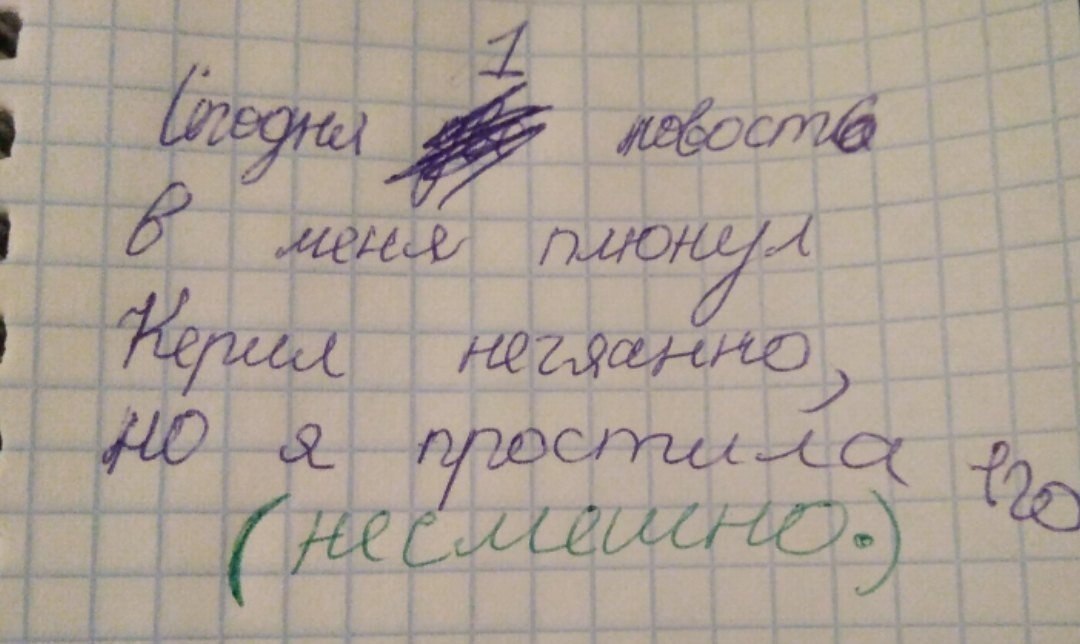 1
Сегодня новость
В меня плюнул
Керил нечяанно,
но я простила его
(несмешно.)